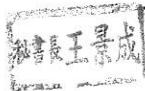 秘書長王景成